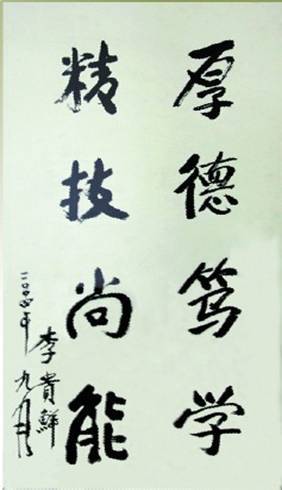 厚德笃学
精技尚能
李贵鲜
二〇〇四年
九月